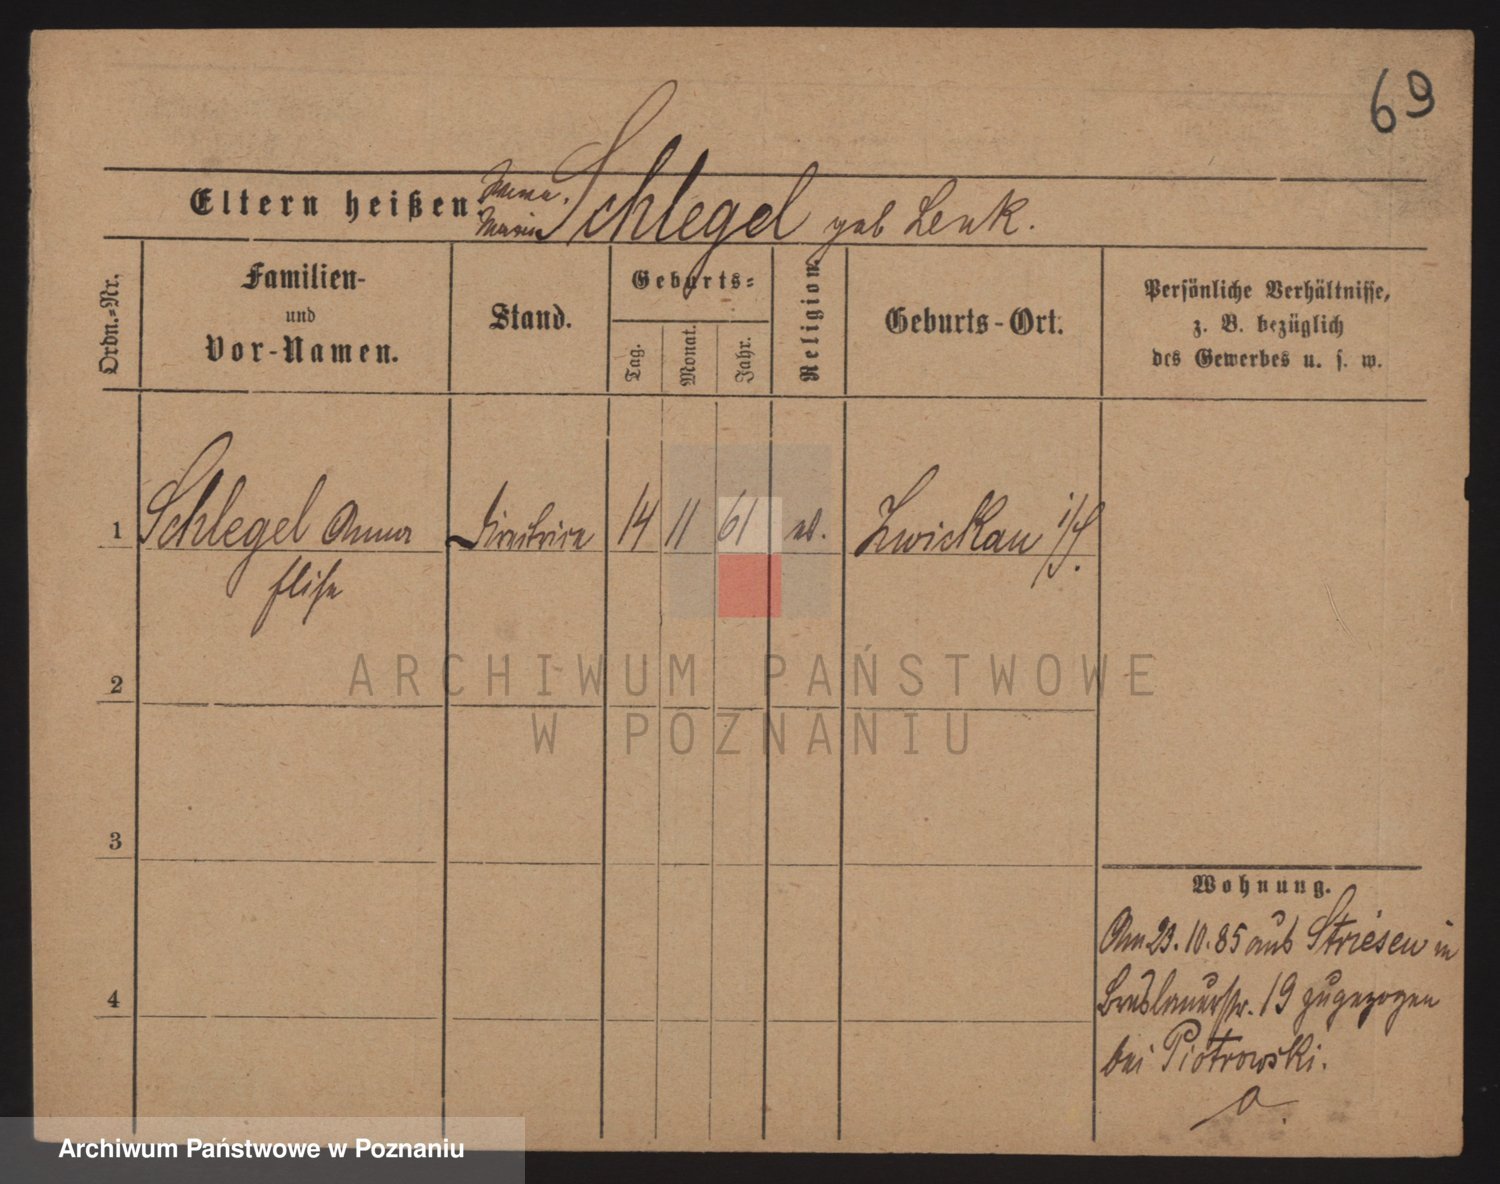 69
Eltern heißen: Anna. Maria Schlegel geb Lenk.
Ordn.=Nr.
Familien-
und
Vor-Namen.
Stand.
Geburts=
Tag.
Monat.
Jahr.
Religion.
Geburts-Ort.
Persönliche Verhältnisse,
z. B. bezüglich
des Gewerbes u. s. w.
1 Schlegel Anna Directrice 14 11 61 ev. Zwickau i/S.
Elise
2
3
4
Wohnung.
Am 23.10.85 aus Striesen in
Breslauerstr. 19 zugezogen
bei Piotrowski.
a.
ARCHIWUM PAŃSTWOWE
W POZNANIU
Archiwum Państwowe w Poznaniu